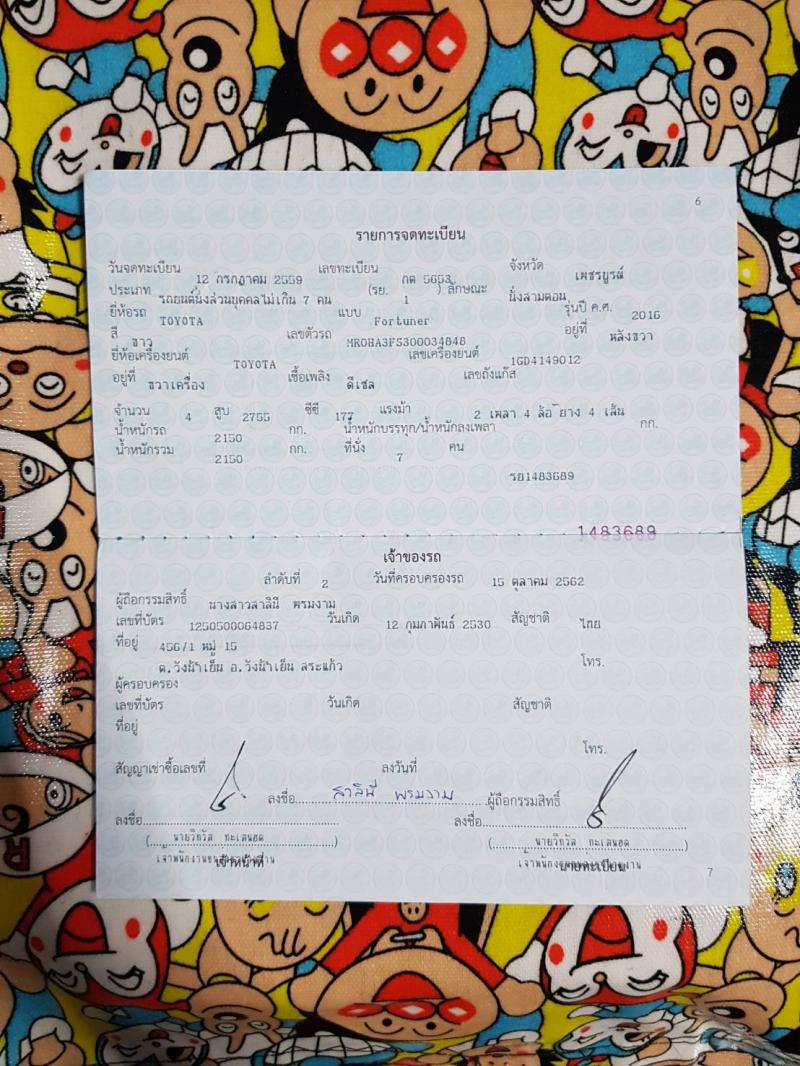 6
รายการจดทะเบียน
วันจดทะเบียน 12 กรกฎาคม 2559 เลขทะเบียน กต 5653 จังหวัด เพชรบูรณ์
ประเภท รถยนต์นั่งส่วนบุคคลไม่เกิน 7 คน (รย. 1 ) ลักษณะ นั่งสามตอน
ยี่ห้อรถ TOYOTA แบบ Fortuner รุ่นปี ค.ศ. 2016
สี ขาว เลขตัวรถ MR0HA3FS300034848 อยู่ที่ หลังขวา
ยี่ห้อเครื่องยนต์ TOYOTA เลขเครื่องยนต์ 1GD4149012
อยู่ที่ ขวาเครื่อง เชื้อเพลิง ดีเซล เลขถังแก๊ส
จำนวน 4 สูบ 2755 ซีซี 177 แรงม้า 2 เพลา 4 ล้อ ยาง 4 เส้น
น้ำหนักรถ 2150 กก. น้ำหนักบรรทุก/น้ำหนักลงเพลา กก.
น้ำหนักรวม 2150 กก. ที่นั่ง 7 คน
รย1483689
1483689
เจ้าของรถ
ลำดับที่ 2 วันที่ครอบครองรถ 15 ตุลาคม 2562
ผู้ถือกรรมสิทธิ์ นางสาวสาลินี พรมงาม
เลขที่บัตร 1250500064837 วันเกิด 12 กุมภาพันธ์ 2530 สัญชาติ ไทย
ที่อยู่ 456/1 หมู่ 15
ต.วังน้ำเย็น อ.วังน้ำเย็น สระแก้ว โทร.
ผู้ครอบครอง
เลขที่บัตร วันเกิด สัญชาติ
ที่อยู่
โทร.
สัญญาเช่าซื้อเลขที่ ลงวันที่
ลงชื่อ สาลินี พรมงาม ผู้ถือกรรมสิทธิ์
ลงชื่อ ลงชื่อ
( นายวิทวัส ทะเสนฮด ) ( นายวิทวัส ทะเสนฮด )
เจ้าหน้าที่ นายทะเบียน
7